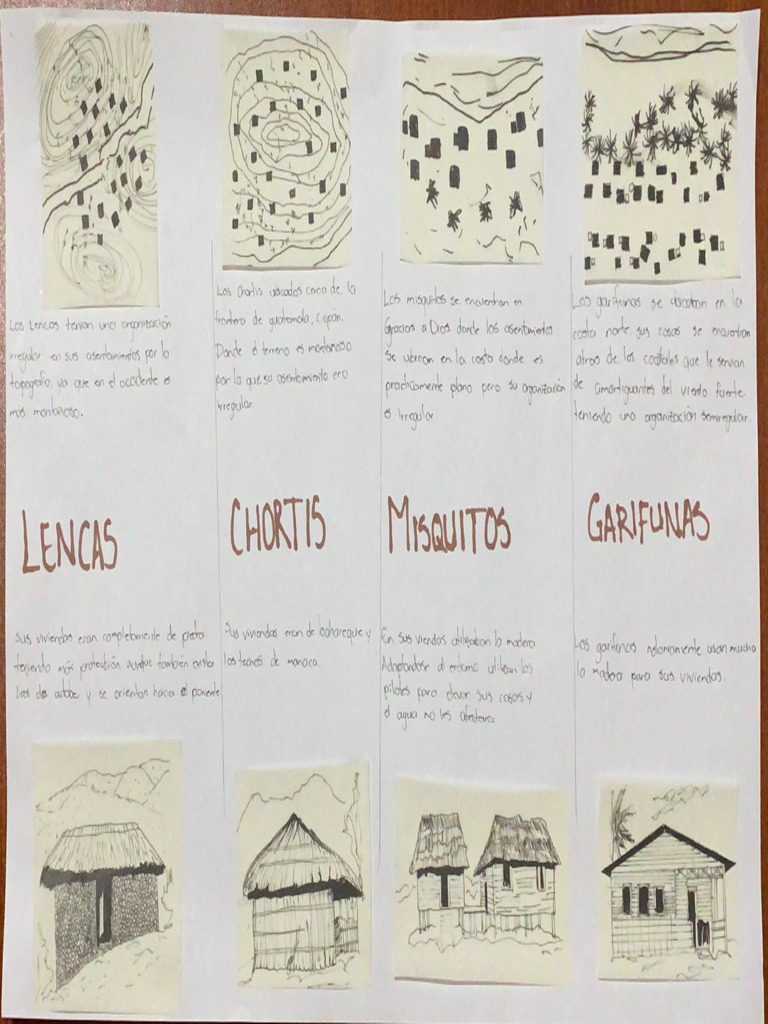 Los Lencas tenian una organización
irregular en sus asentamientos por la
topografia, ya que en el occidente es
mas montañoso.
Los chortis ubicados cerca de la
frontera de guatemala, copan.
Donde el terreno es montañoso
por lo que su asentamiento era
irregular
Los misquitos se encuentran en
Gracias a Dios donde los asentamientos
se ubican en la costa donde es
practicamente plano pero su organización
es irregular
Los garifunas se ubican en la
costa norte, sus casas se encuentran
atras de los cocotales que le servian
de amortiguantes del viento fuerte.
teniendo una organización semiregular.
LENCAS
CHORTIS
MISQUITOS
GARIFUNAS
Sus viviendas eran completamente de piedra
teniendo más protección aunque también
de adobe y se orientan hacia el poniente
Sus viviendas eran de bahareque y
los techos de manaca.
En sus viendas utilizaban la madera
Adaptandose al entorno utilizan los
pilotes para elevar sus casas y
el agua no les afectara.
Los garifunas notoriamente usan mucho
la madera para sus viviendas.